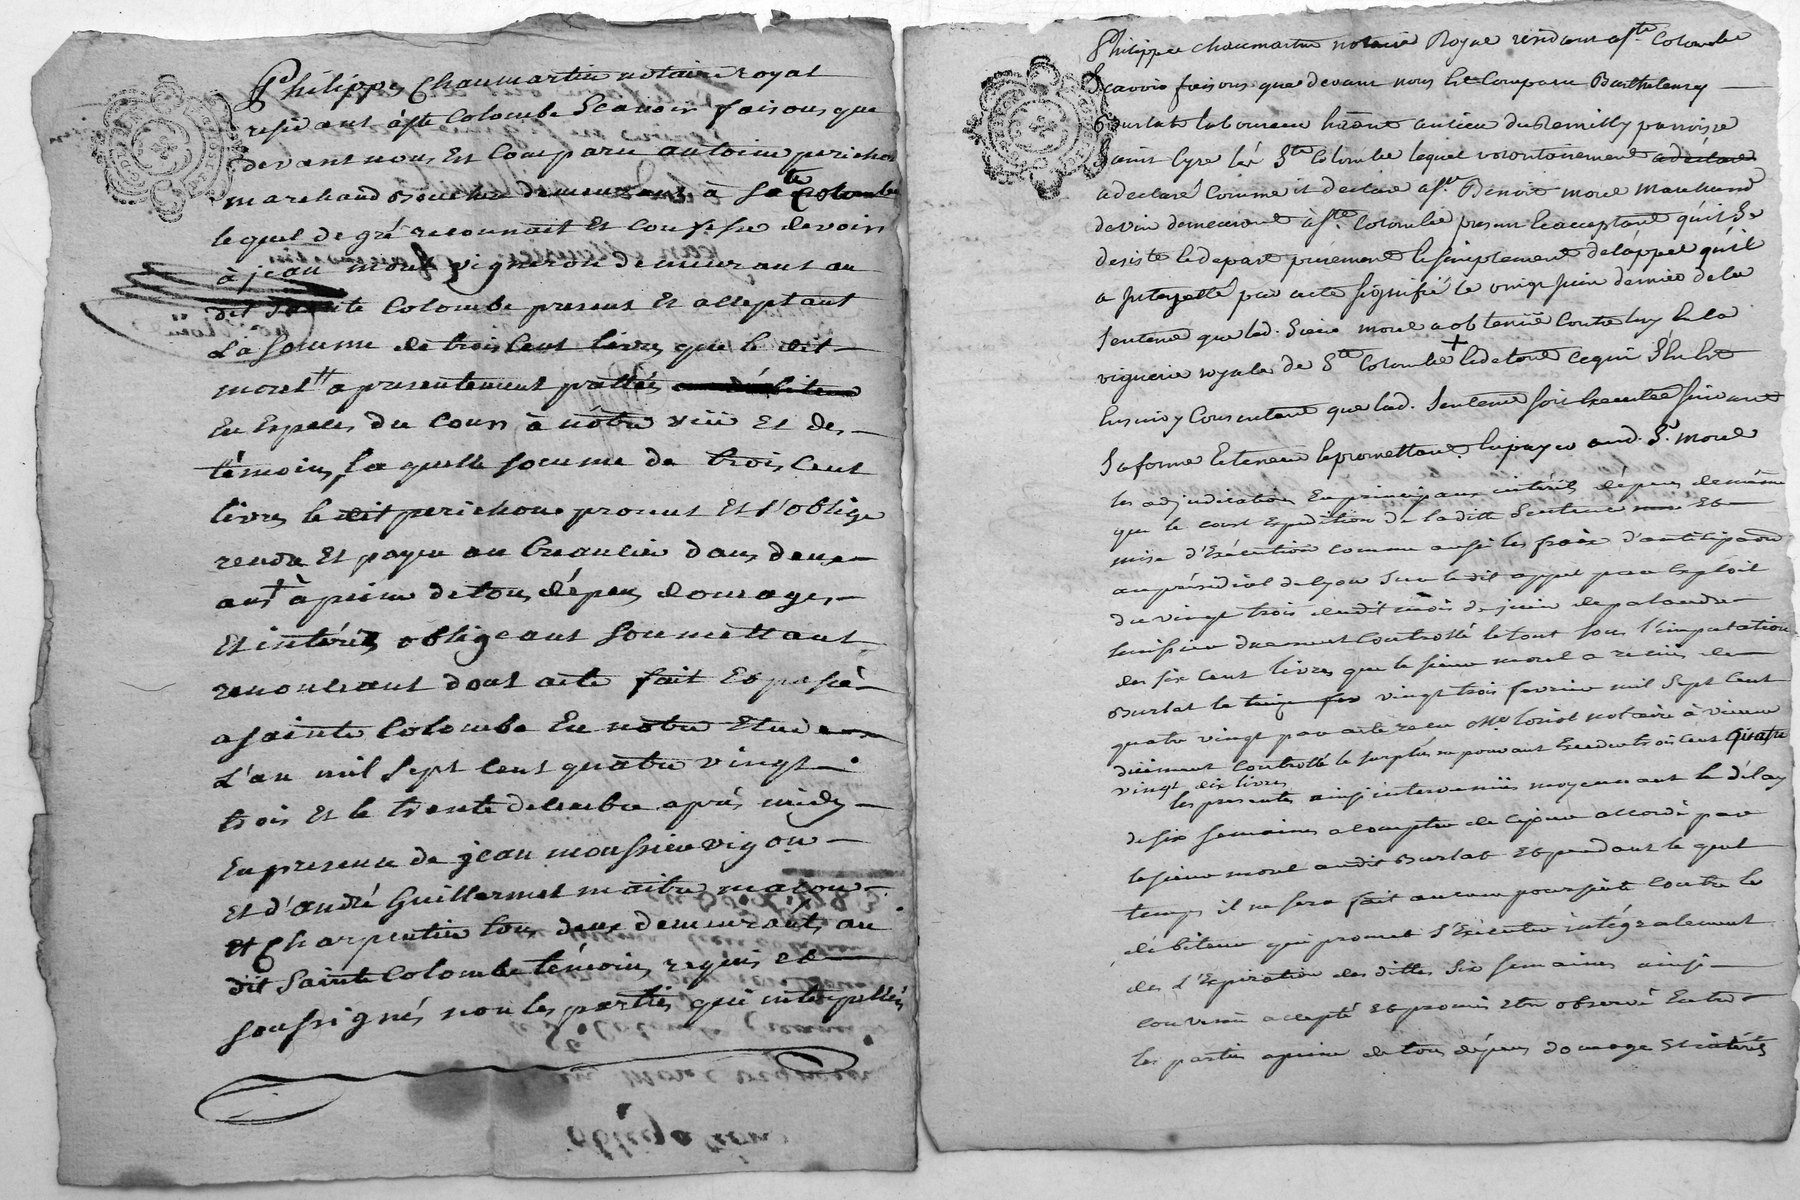 Philippe Chaumartin notaire royal
residant à ste Colombe Scavoir faisons que
devant nous Est Comparu antoine perichon
marchand Boucher demeurant à Ste Colombe
lequel de gré reconnait Et confesse devoir
à jean morel vigneron demeurant au
dit Sainte Colombe present Et acceptant
La Somme de trois Cent livres que le dit
morel a presentement
En Especes du Cours à nôtre vüe Et des
témoins, la quelle somme de trois Cent
livres le dit perichon promet Et s'oblige
rendre Et payer au Creancier dans deux
ans à peine de tous dépens domages
Et intérêts obligeant Soumettant
renoncant dont acte fait Et passé
a sainte Colombe En notre Etude
L'an mil Sept Cent quatre vingt
trois Et le trente decembre après midy
En presence de jean monssieu vigon
Et d'andré Guillermet maitre macon
Et Charpentier tous deux demeurants au
dit Sainte Colombe témoins requis et
soussignés non les parties qui interpellées
obligation
Philippe Chaumartin notaire Royal residant a Ste Colombe
Scavoir faisons que devant nous Est Comparu Barthelemy
Burlat laboureur hâant au lieu du Remilly parroisse
Saint Cyre lès Ste Colombe lequel volontairement a déclaré
a declaré Comme il declare a Sr. Benoit morel Marchand
de vin demeurant à Ste. Colombe present Et acceptant qu'il Se
desiste Et depart purement Et Simplement de l'appel qu'il
a Interjetté par acte Signifié le vingt juin dernier de la
Sentence que led. Sieur morel a obtenüe Contre luy En la
viguerie royale de Ste Colombe Et de tout ce qui S'en Est
Ensuivy Consentant que lad. Sentence soit Executée suivant
Sa forme Et teneur Et promettant En payer aud. Sr. morel
les adjudications En principaux intérêts dépens de même
que le coust Expedition de la ditte Sentence Et
mise d'Exécution comme aussi les frais d'anticipation
au présidial de Lyon Sur le dit appel par Exploit
du vingt trois dudit mois de juin
huissier duement Controllé le tout sous l'imputation
des six Cent livres que le sieur morel a reçüe de
Burlat le vingt trois fevrier mil Sept Cent
quatre vingt par acte reçu Me loriot notaire à vienne
düement Controllé le surplus ne pouvant Exceder trois Cent Quatre
vingt dix livres
les presentes ainsi intervenües moyennant le délay
de six semaines a compter de ce jour accordé par
le sieur morel audit Burlat Et pendant le quel
temps il ne sera fait aucune poursuite Contre le
débiteur qui promet S'Exécuter intégralement
dès L'Expiration des dittes Six semaines ainsi
convenu accepté Et promis Etre observé Entre
les parties a peine de tous dépens domage Et intérêts